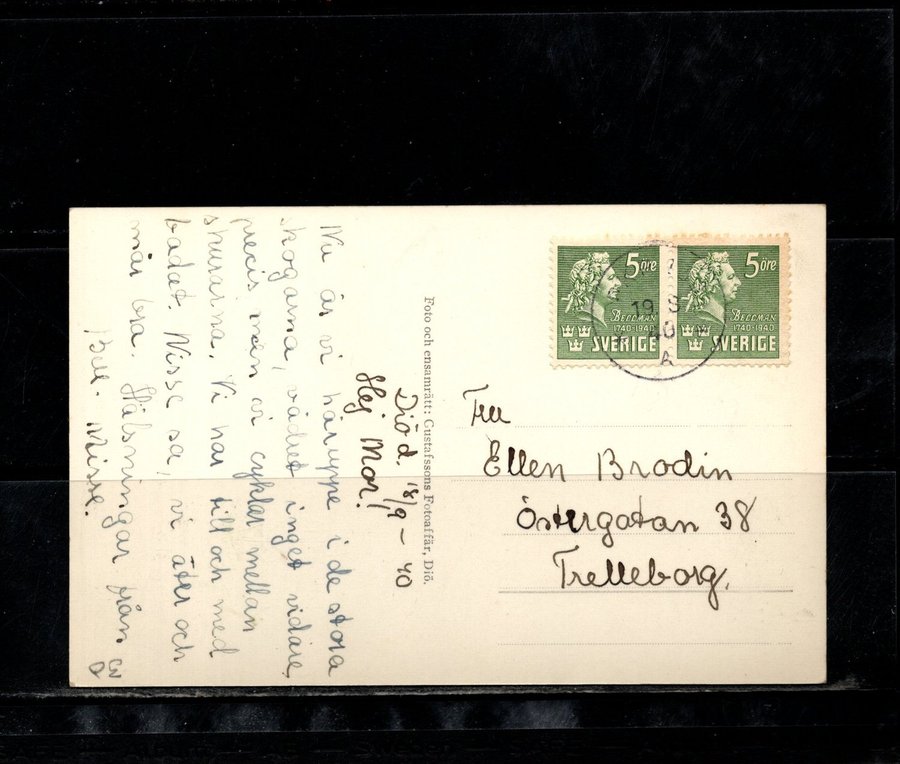 Diöd. 18/9-40
Hej Mor!
Nu är vi häruppe i de stora
skogarna, vädret inget vidare,
precis men vi cyklar mellan
skurarna. Vi har till och med
badat. Nisse sa, vi äter och
mår bra. Hälsningar från
Nisse.
Foto och ensamrätt: Gustafssons Fotoaffär, Diö.
5 öre
BELLMAN
1740-1940
SVERIGE
5 öre
BELLMAN
1740-1940
SVERIGE
19 9
40
A
Fru
Ellen Brodin
Östergatan 38
Trelleborg.